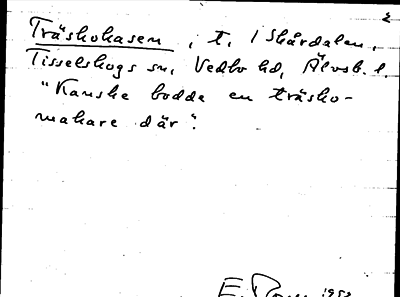 Träskokasen, t. i Skårdalen,
Tisselskogs sn, Vedbo hd, Älvsb. l.
"Kanske bodde en träsko-
makare där".
E. 1952